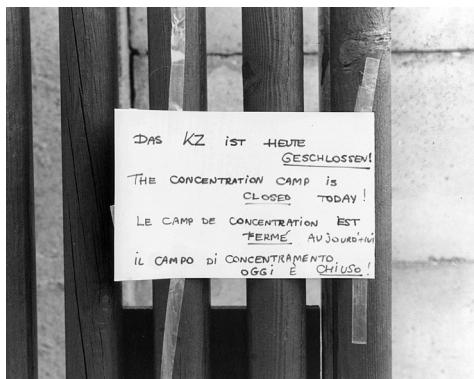 DAS KZ IST HEUTE
GESCHLOSSEN!
THE CONCENTRATION CAMP is
CLOSED TODAY!
LE CAMP DE CONCENTRATION EST
FERMÉ AUJOURD'HUI
iL CAMPO Di CONCENTRAMENTO
OGGI È CHIUSO!